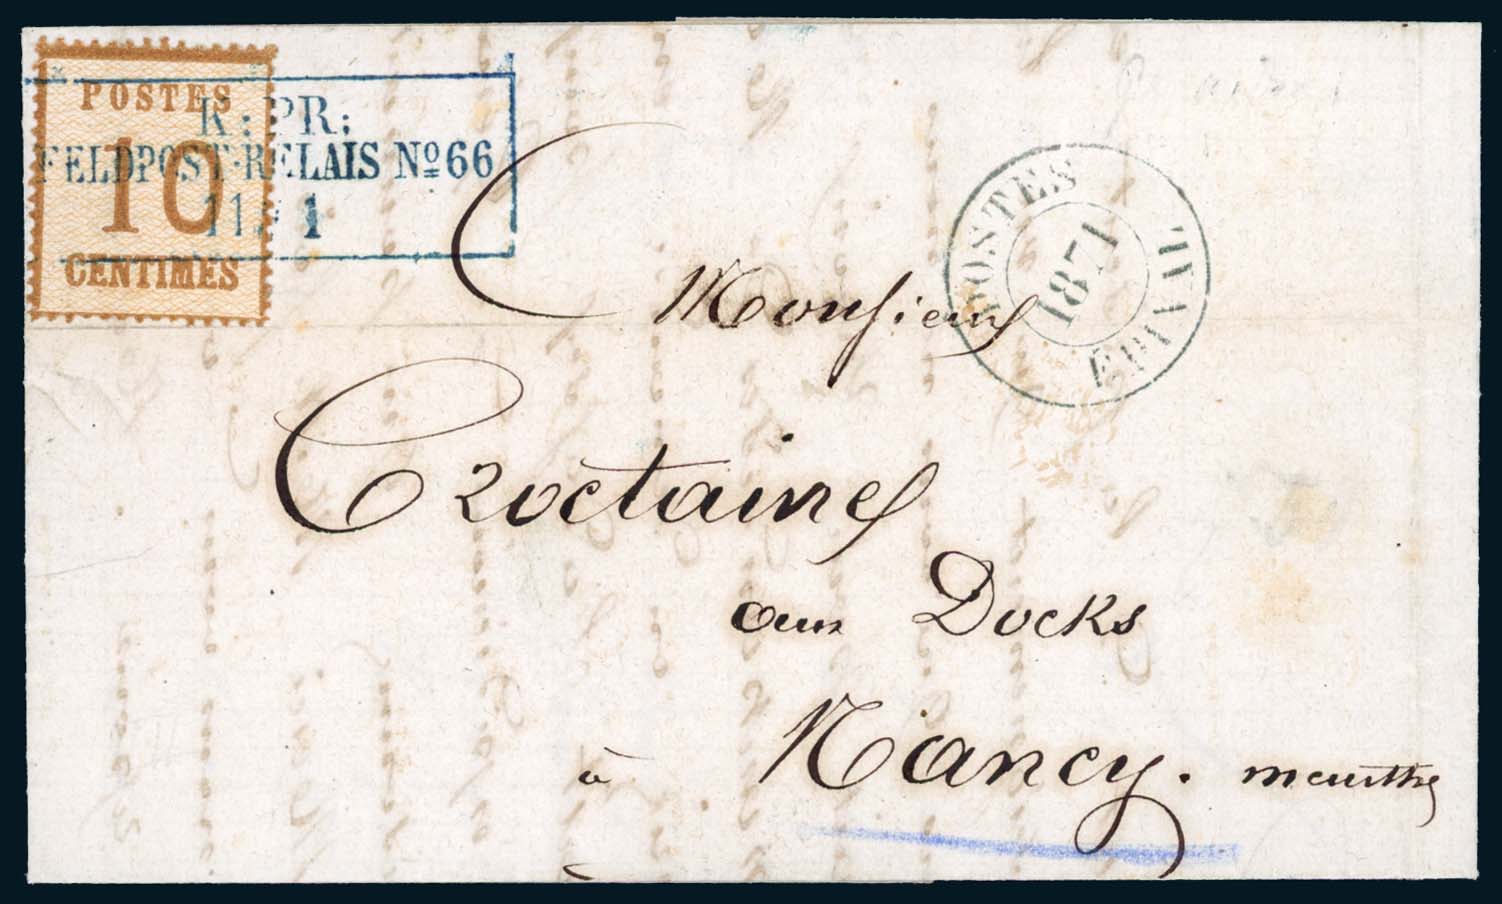 POSTES
10
CENTIMES
K: PR:
FELDPOST-RELAIS Nº 66
11 1
POSTES
1871
Monsieur
Croctaine
aux Docks
à Nancy. meurthe